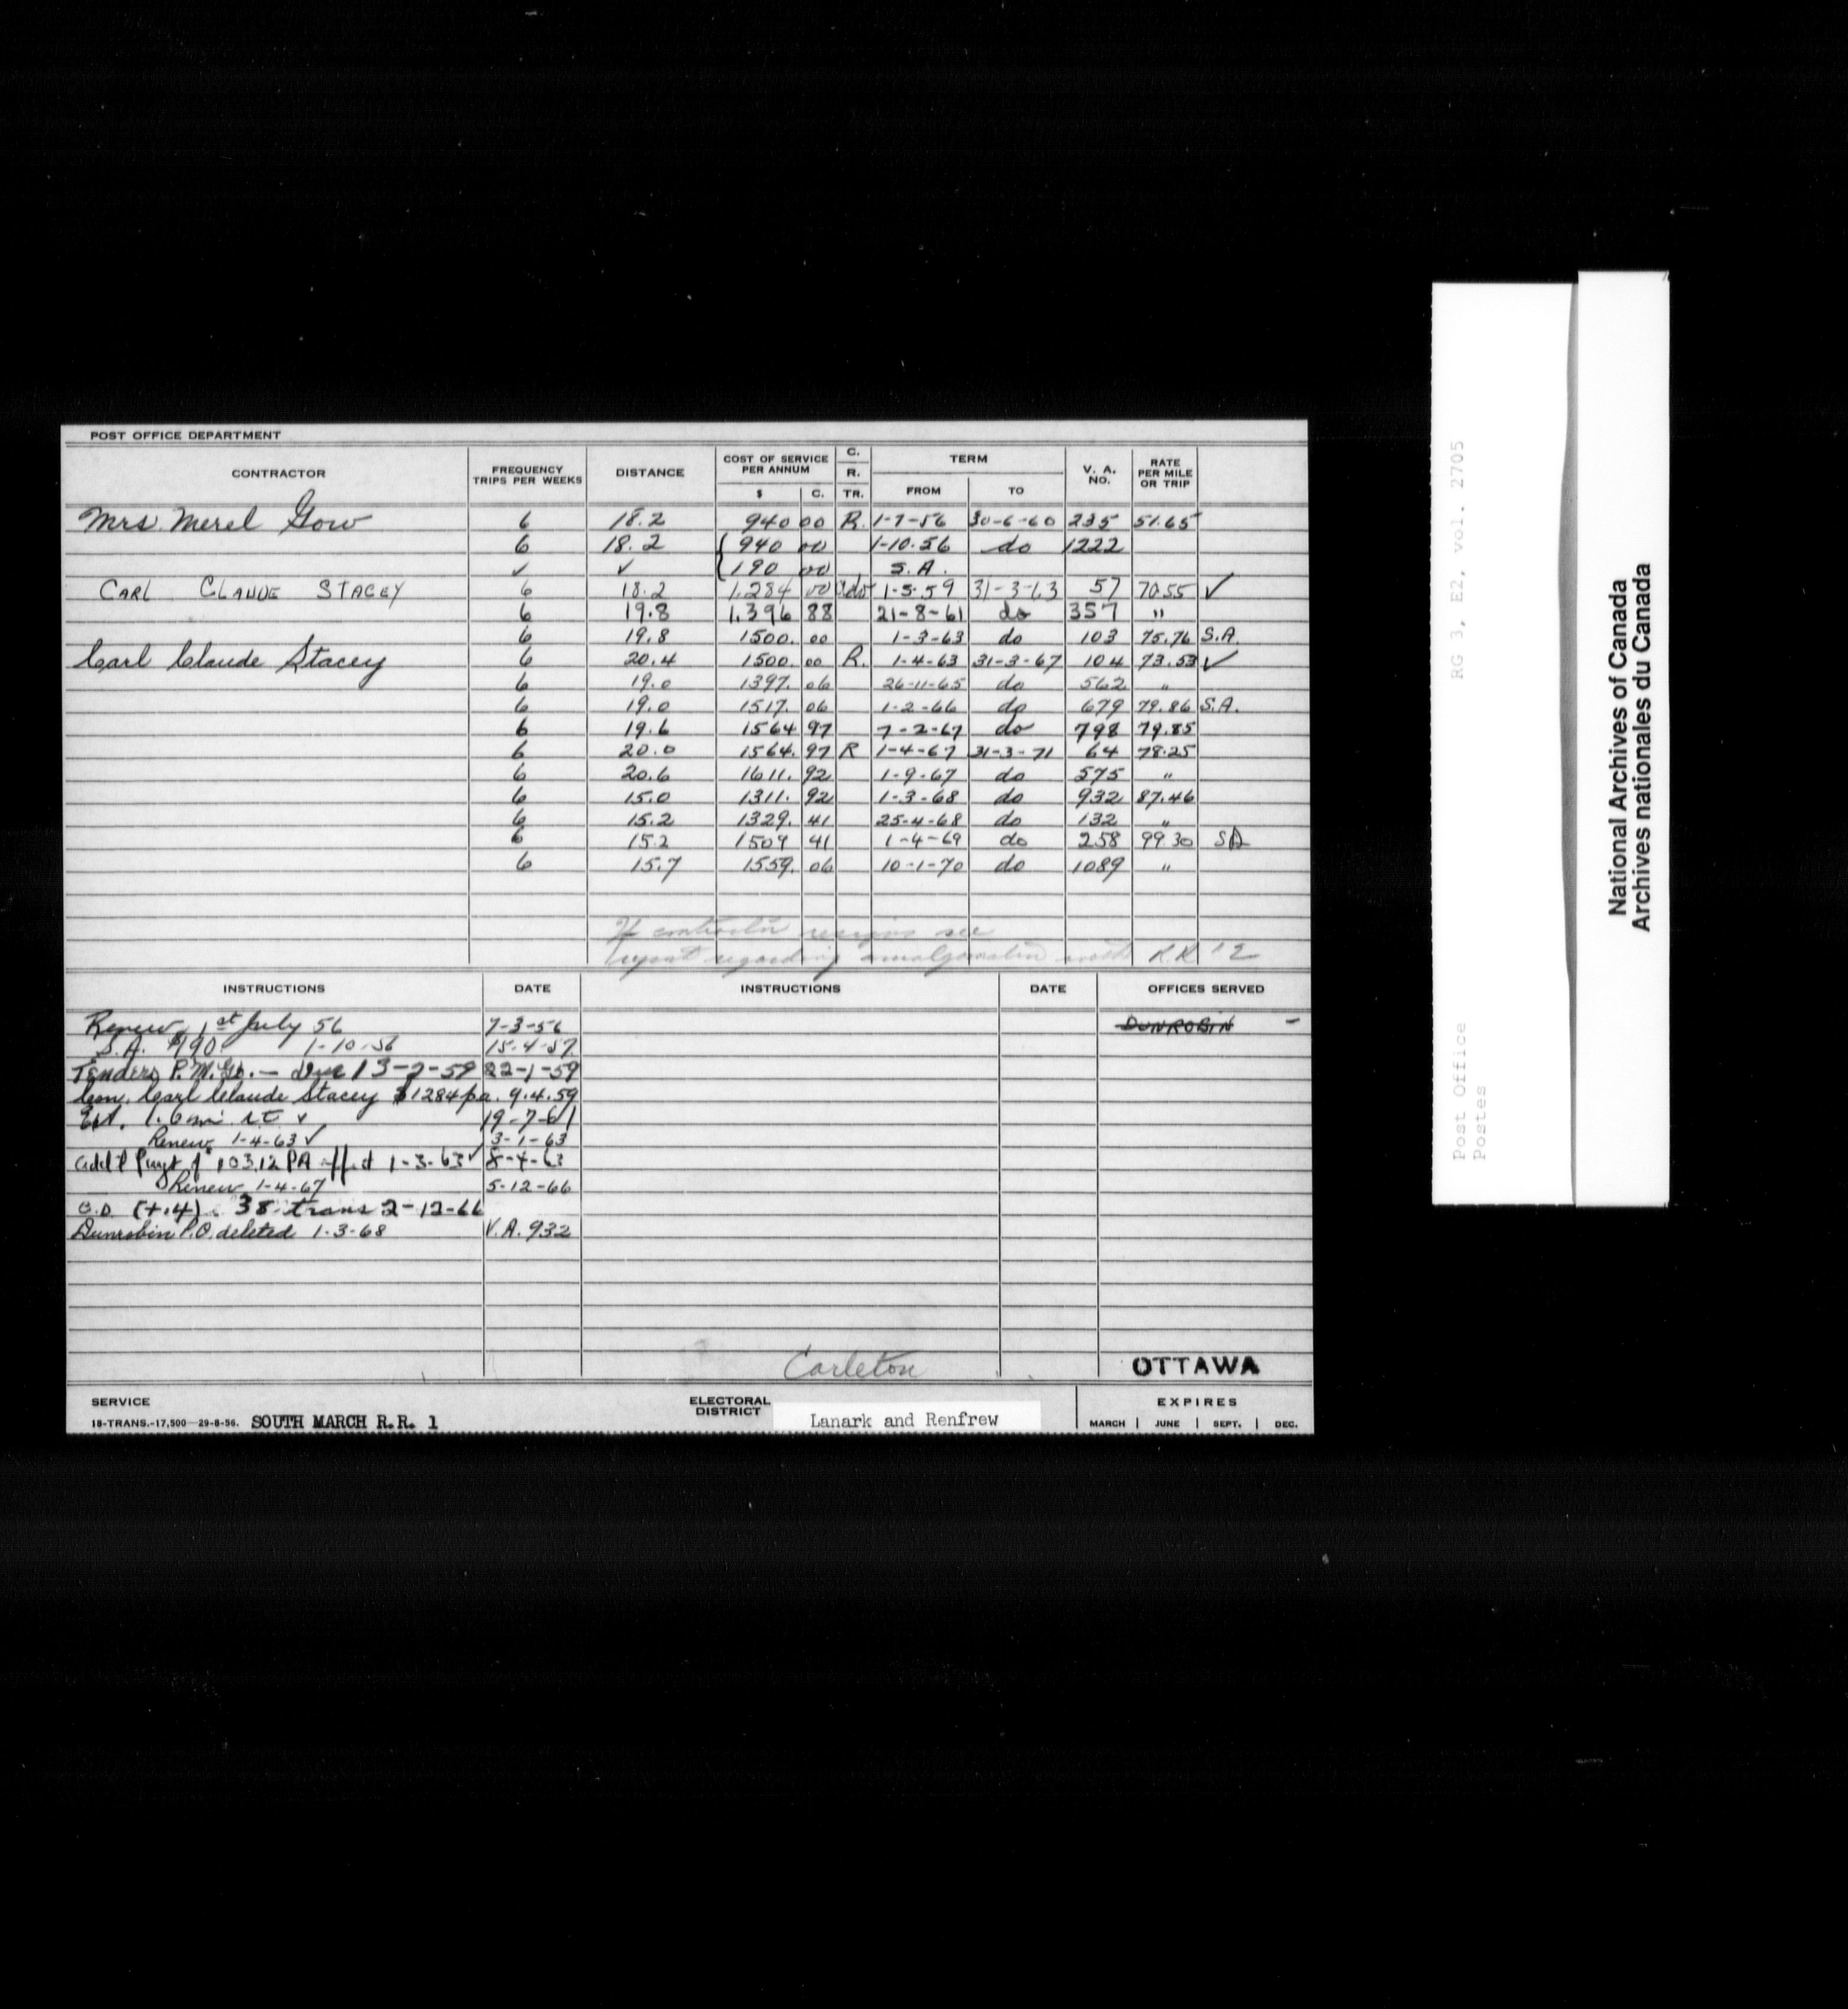 POST OFFICE DEPARTMENT
CONTRACTOR FREQUENCY TRIPS PER WEEKS DISTANCE COST OF SERVICE PER ANNUM $ C. C. R. TR. TERM FROM TO V. A. NO. RATE PER MILE OR TRIP
Mrs. Merel Gow 6 18.2 940 00 R. 1-7-56 30-6-60 235 51.65
6 18.2 940 00 1-10-56 do 1222
✓ ✓ 190 00 S.A.
CARL CLAUDE STACEY 6 18.2 1,284 00 1-5-59 31-3-63 57 70.55 ✓
6 19.8 1,396 88 21-8-61 do 357 "
6 19.8 1500. 00 1-3-63 do 103 75.76 S.A.
Carl Claude Stacey 6 20.4 1500. 00 R. 1-4-63 31-3-67 104 73.53 ✓
6 19.0 1397. 06 26-11-65 do 562 "
6 19.0 1517. 06 1-2-66 do 679 79.86 S.A.
6 19.6 1564 97 7-2-67 do 798 79.85
6 20.0 1564. 97 R 1-4-67 31-3-71 64 78.25
6 20.6 1611. 92 1-9-67 do 575 "
6 15.0 1311. 92 1-3-68 do 932 87.46
6 15.2 1329. 41 25-4-68 do 132 "
6 15.2 1509 41 1-4-69 do 258 99.30 SA
6 15.7 1559. 06 10-1-70 do 1089 "
If contractor resigns see
report regarding amalgamation with R.R #2
INSTRUCTIONS DATE INSTRUCTIONS DATE OFFICES SERVED
Renew 1st July 56 7-3-56 DUNROBIN -
S.A. $190 1-10-56 15-4-57
Tenders P.M.G. — Due 13-2-59 22-1-59
Con. Carl Claude Stacey $1284 p.a. 9.4.59
Ext. 1.6 mi. R.T. ✓ 19-7-61
Renew 1-4-63 ✓ 3-1-63
Add'l Paymt of $103.12 PA effect 1-3-63 ✓ 8-4-63
Renew 1-4-67 5-12-66
O.D (+.4) 38 trans 2-12-66
Dunrobin P.O. deleted 1-3-68 V.A. 932
Carleton OTTAWA
SERVICE
18-TRANS.-17,500—29-8-56. SOUTH MARCH R.R. 1
ELECTORAL DISTRICT Lanark and Renfrew
EXPIRES
MARCH | JUNE | SEPT. | DEC.
RG 3, E2, vol. 2705
Post Office
Postes
National Archives of Canada
Archives nationales du Canada